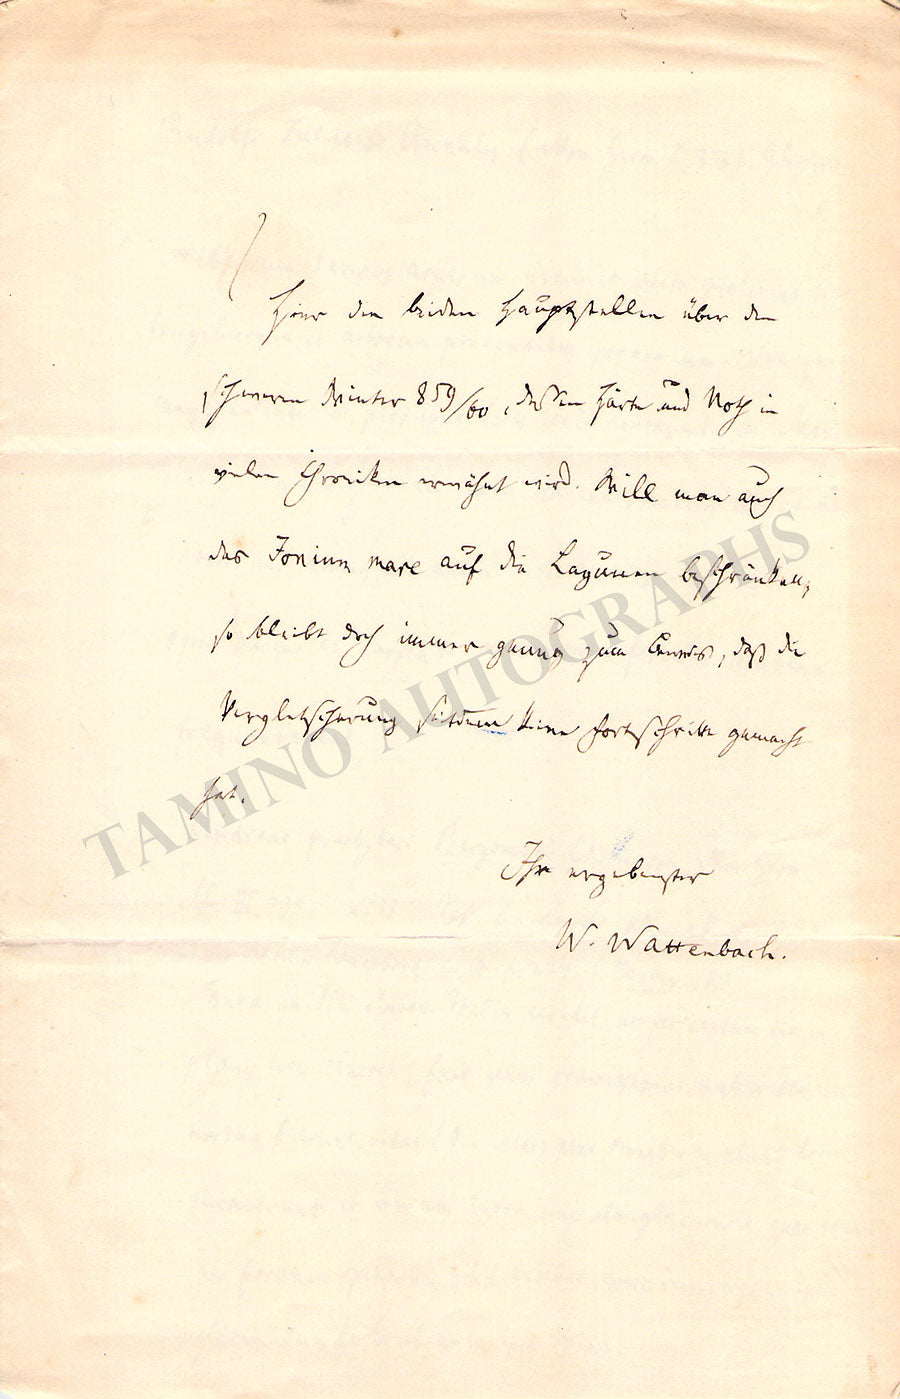 Hier die beiden Hauptstellen über den
schweren Winter 859/60, dessen Härte und Noth in
vielen Chroniken erwähnt wird. Will man auch
das Ionium mare auf die Lagunen beschränken,
so bleibt doch immer genug zum Beweis, daß die
Vergletscherung seitdem keine Fortschritte gemacht
hat.
Ihr ergebenster
W. Wattenbach.
TAMINO AUTOGRAPHS